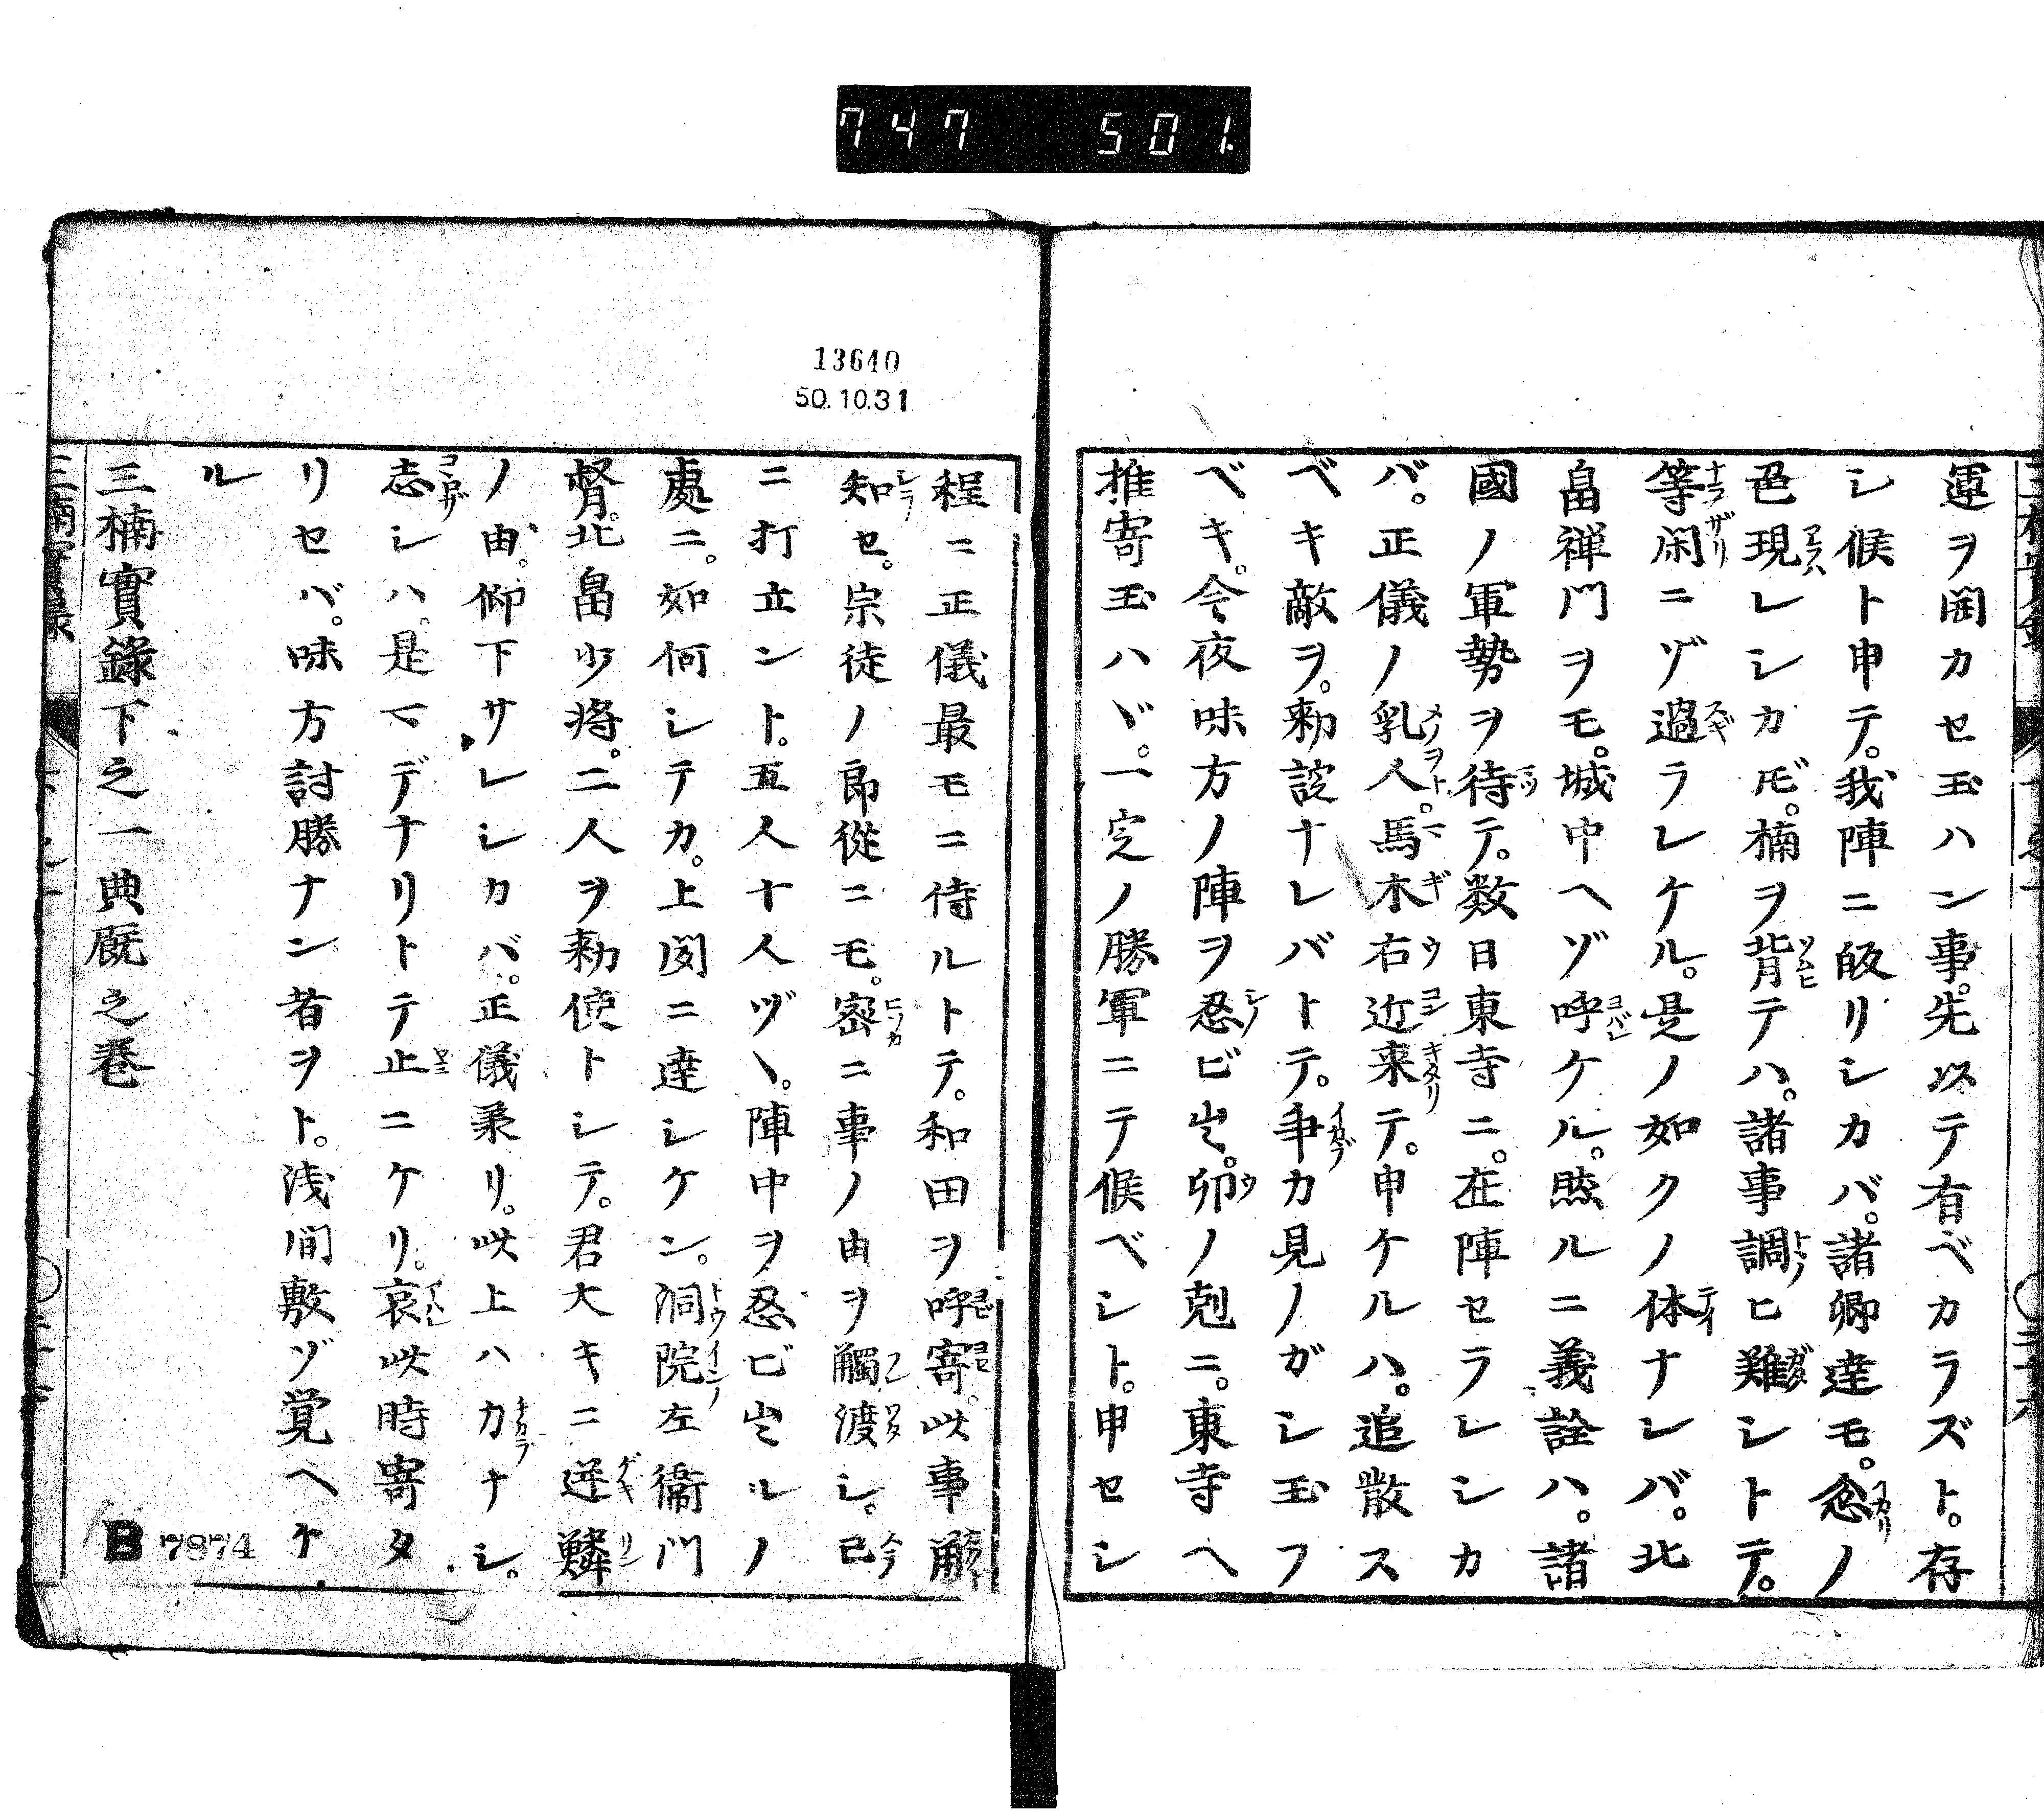 747 501.
運ヲ開カセ玉ハン事。先以テ有ベカラズト。存
シ候ト申テ。我陣ニ皈リシカバ。諸卿達モ。忿ノ
色現レシカ𪜈。楠ヲ背テハ。諸事調ヒ難シトテ。
等閑ニゾ過ラレケル。是ノ如クノ体ナレバ。北
畠禅門ヲモ。城中ヘゾ呼ケル。然ルニ義詮ハ。諸
國ノ軍勢ヲ待テ。数日東寺ニ。在陣セラレシカ
バ。正儀ノ乳人。馬木右近来テ。申ケルハ。追散ス
ベキ敵ヲ。勅諚ナレバトテ。争カ見ノガシ玉フ
ベキ。今夜味方ノ陣ヲ忍ビ出。卯ノ剋ニ。東寺ヘ
推寄玉ハヾ。一定ノ勝軍ニテ候ベシト。申セシ
13640
50.10.31
程ニ正儀最モニ侍ルトテ。和田ヲ呼寄。此事觧
知セ。宗徒ノ郎從ニモ。密ニ事ノ由ヲ觸渡シ。已
ニ打立ント。五人十人ヅヽ。陣中ヲ忍ビ出ルノ
處ニ。如何シテカ。上聞ニ達シケン。洞院左衞門
督。北畠少将。二人ヲ勅使トシテ。君大キニ逆鱗
ノ由。仰下サレシカバ。正儀承リ。此上ハカナシ。
志シハ。是マデナリトテ止ニケリ。哀此時寄タ
リセバ。味方討勝ナン者ヲト。浅間敷ゾ覚ヘケ
ル
三楠實錄下之一典厩之巻
B 7874